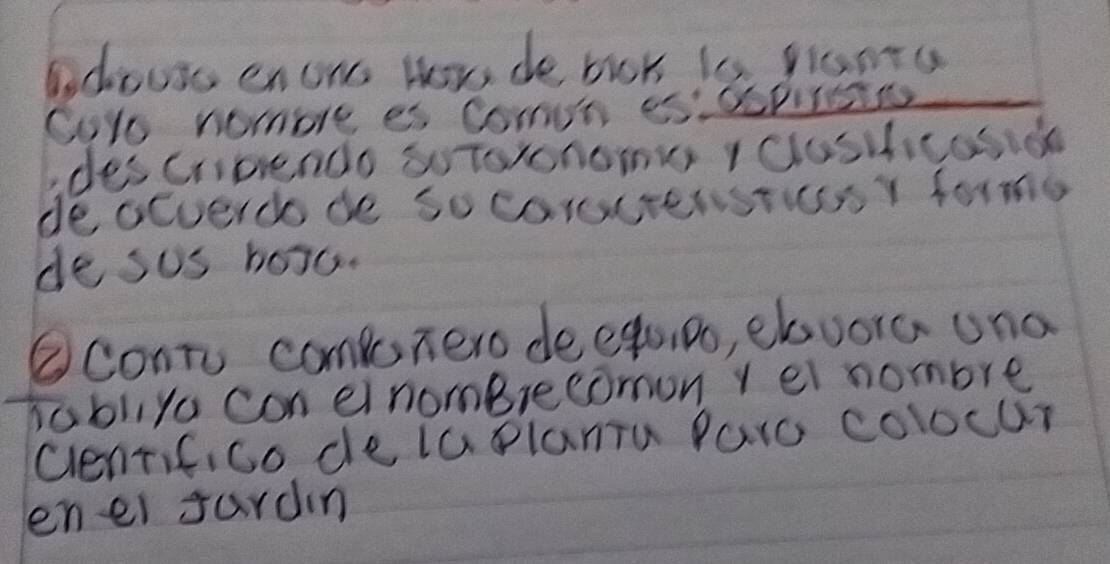 1. divuja en una Hoja de blok la planta
cuyo nombre es común es:
describiendo su taxonomia y clasificasión
de acuerdo de su caracteristicas y forma
de sus hoja.
2 con tu compañero de equipo, elavora una
tabliya con el nombre comun y el nombre
cientifico de la planta para colocar
en el jardin